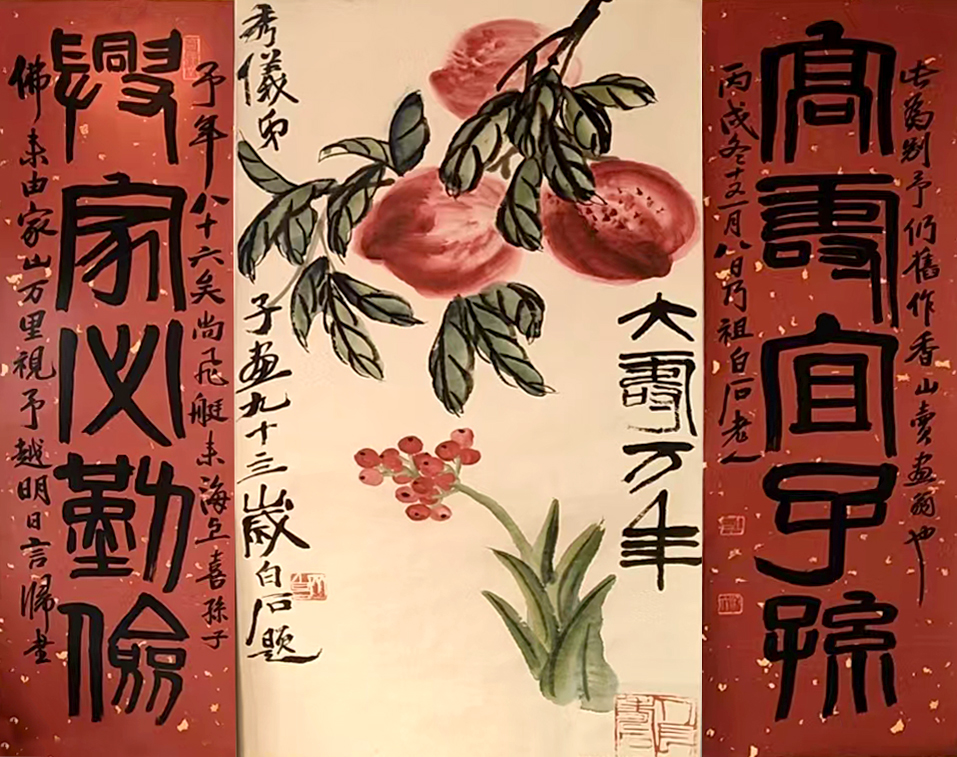 此為别予仍舊作香山賣画翁也
高壽宜子孫
丙戌冬十又一月八日乃祖白石老人
大壽万年
秀儀
子画九十三歲白石題
予年八十六矣尚飛艇来海上喜孫子
興家必勤儉
佛来由家山万里視予越明日言歸書